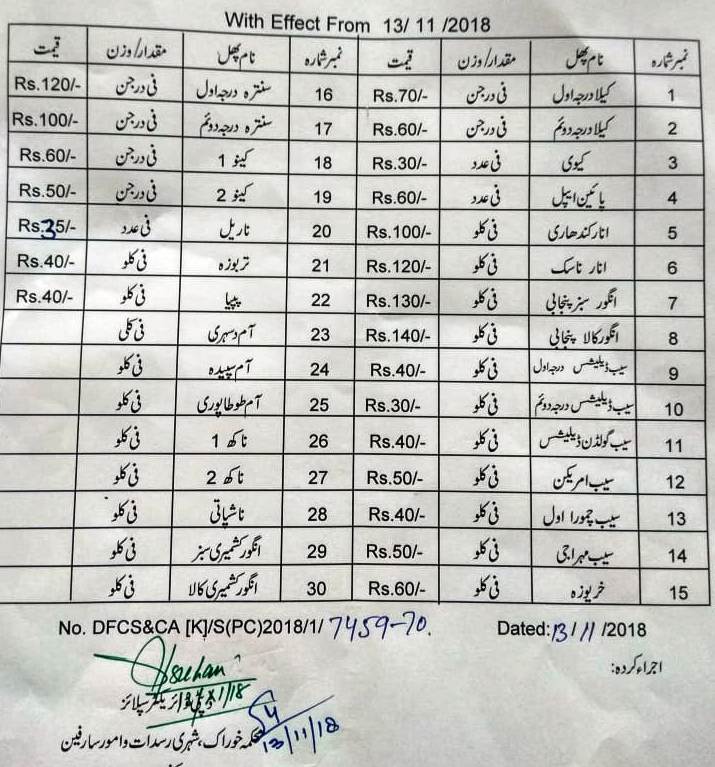 With Effect From 13/ 11 /2018
نمبر شمارہ نام پھل مقدار/وزن قیمت نمبر شمارہ نام پھل مقدار/وزن قیمت
1 کیلا درجہ اول فی درجن Rs.70/- 16 سنترہ درجہ اول فی درجن Rs.120/-
2 کیلا درجہ دوئم فی درجن Rs.60/- 17 سنترہ درجہ دوئم فی درجن Rs.100/-
3 کیوی فی عدد Rs.30/- 18 کینو 1 فی درجن Rs.60/-
4 پائین ایپل فی عدد Rs.60/- 19 کینو 2 فی درجن Rs.50/-
5 انار کندھاری فی کلو Rs.100/- 20 ناریل فی عدد Rs.35/-
6 انار ناسک فی کلو Rs.120/- 21 تربوزہ فی کلو Rs.40/-
7 انگور سبز پنجابی فی کلو Rs.130/- 22 پپیا فی کلو Rs.40/-
8 انگور کالا پنجابی فی کلو Rs.140/- 23 آم دسہری فی کلی
9 سیب ڈیلیشس درجہ اول فی کلو Rs.40/- 24 آم سپیدہ فی کلو
10 سیب ڈیلیشس درجہ دوئم فی کلو Rs.30/- 25 آم طوطا پوری فی کلو
11 سیب گولڈن ڈیلیشس فی کلو Rs.40/- 26 ناکھ 1 فی کلو
12 سیب امریکن فی کلو Rs.50/- 27 ناکھ 2 فی کلو
13 سیب چمورا اول فی کلو Rs.40/- 28 ناشپاتی فی کلو
14 سیب مہراجی فی کلو Rs.50/- 29 انگور کشمیری سبز فی کلو
15 خربوزہ فی کلو Rs.60/- 30 انگور کشمیری کالا فی کلو
No. DFCS&CA [K]/S(PC)2018/1/ 7459-70. Dated:13/11/2018
اجراء کردہ:
ڈپٹی ڈائریکٹر سپلائز
13/11/18
محکمہ خوراک، شہری رسدات و امور صارفین